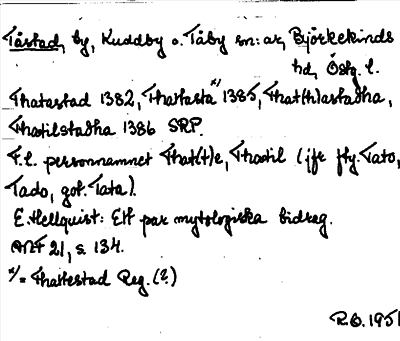 Tåstad, by, Kuddby o. Tåby sn:ar, Björkekinds
hd, Östg. l.
Thatastad 1382, Thattasta x/ 1385, That(h)astadha,
Thodilstadha 1386 SRP.
T.l. personnamnet That(t)e, Thodil (jfr fty. Tato,
Tado, got. Tata).
E. Hellquist: Ett par mytologiska bidrag.
ANF 21, s. 134.
x/ = Thattestad Reg. (?)
R.O. 1951